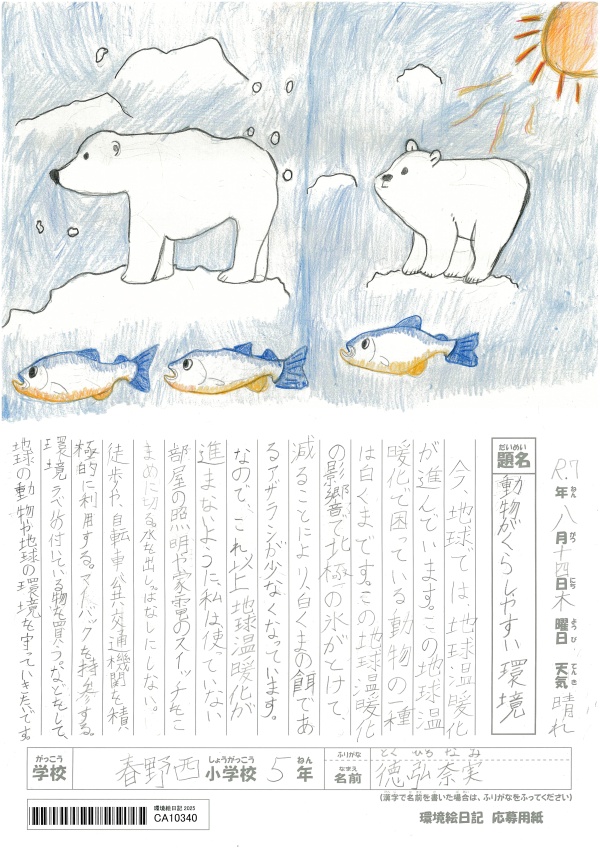 R.7年八月十四日木曜日 天気 晴れ
ねん がつ にち ようび てんき
だいめい
題名 動物がくらしやすい環境
今、地球では、地球温暖化
が進んでいます。この地球温
暖化で困っている動物の一種
は白くまです。この地球温暖化
の影響で北極の氷がとけて、
減ることにより、白くまの餌であ
るアザラシが少なくなっています。
なので、これ以上地球温暖化が
進まないように、私は使ていない
部屋の照明や家電のスイッチをこ
まめに切る。水を出しっぱなしにしない。
徒歩や、自転車、公共交通機関を積、
極的に利用する。マイバックを持参する。
環境ラベル付いている物を買う。などをして、
地球の動物や地球の環境を守っていきたいです。
がっこう しょうがっこう ねん
学校 春野西小学校 5年
ふりがな とくひろなみ
なまえ
名前 徳弘奈実
(漢字で名前を書いた場合は、ふりがなをふってください)
環境絵日記 2025
CA10340
環境絵日記 応募用紙